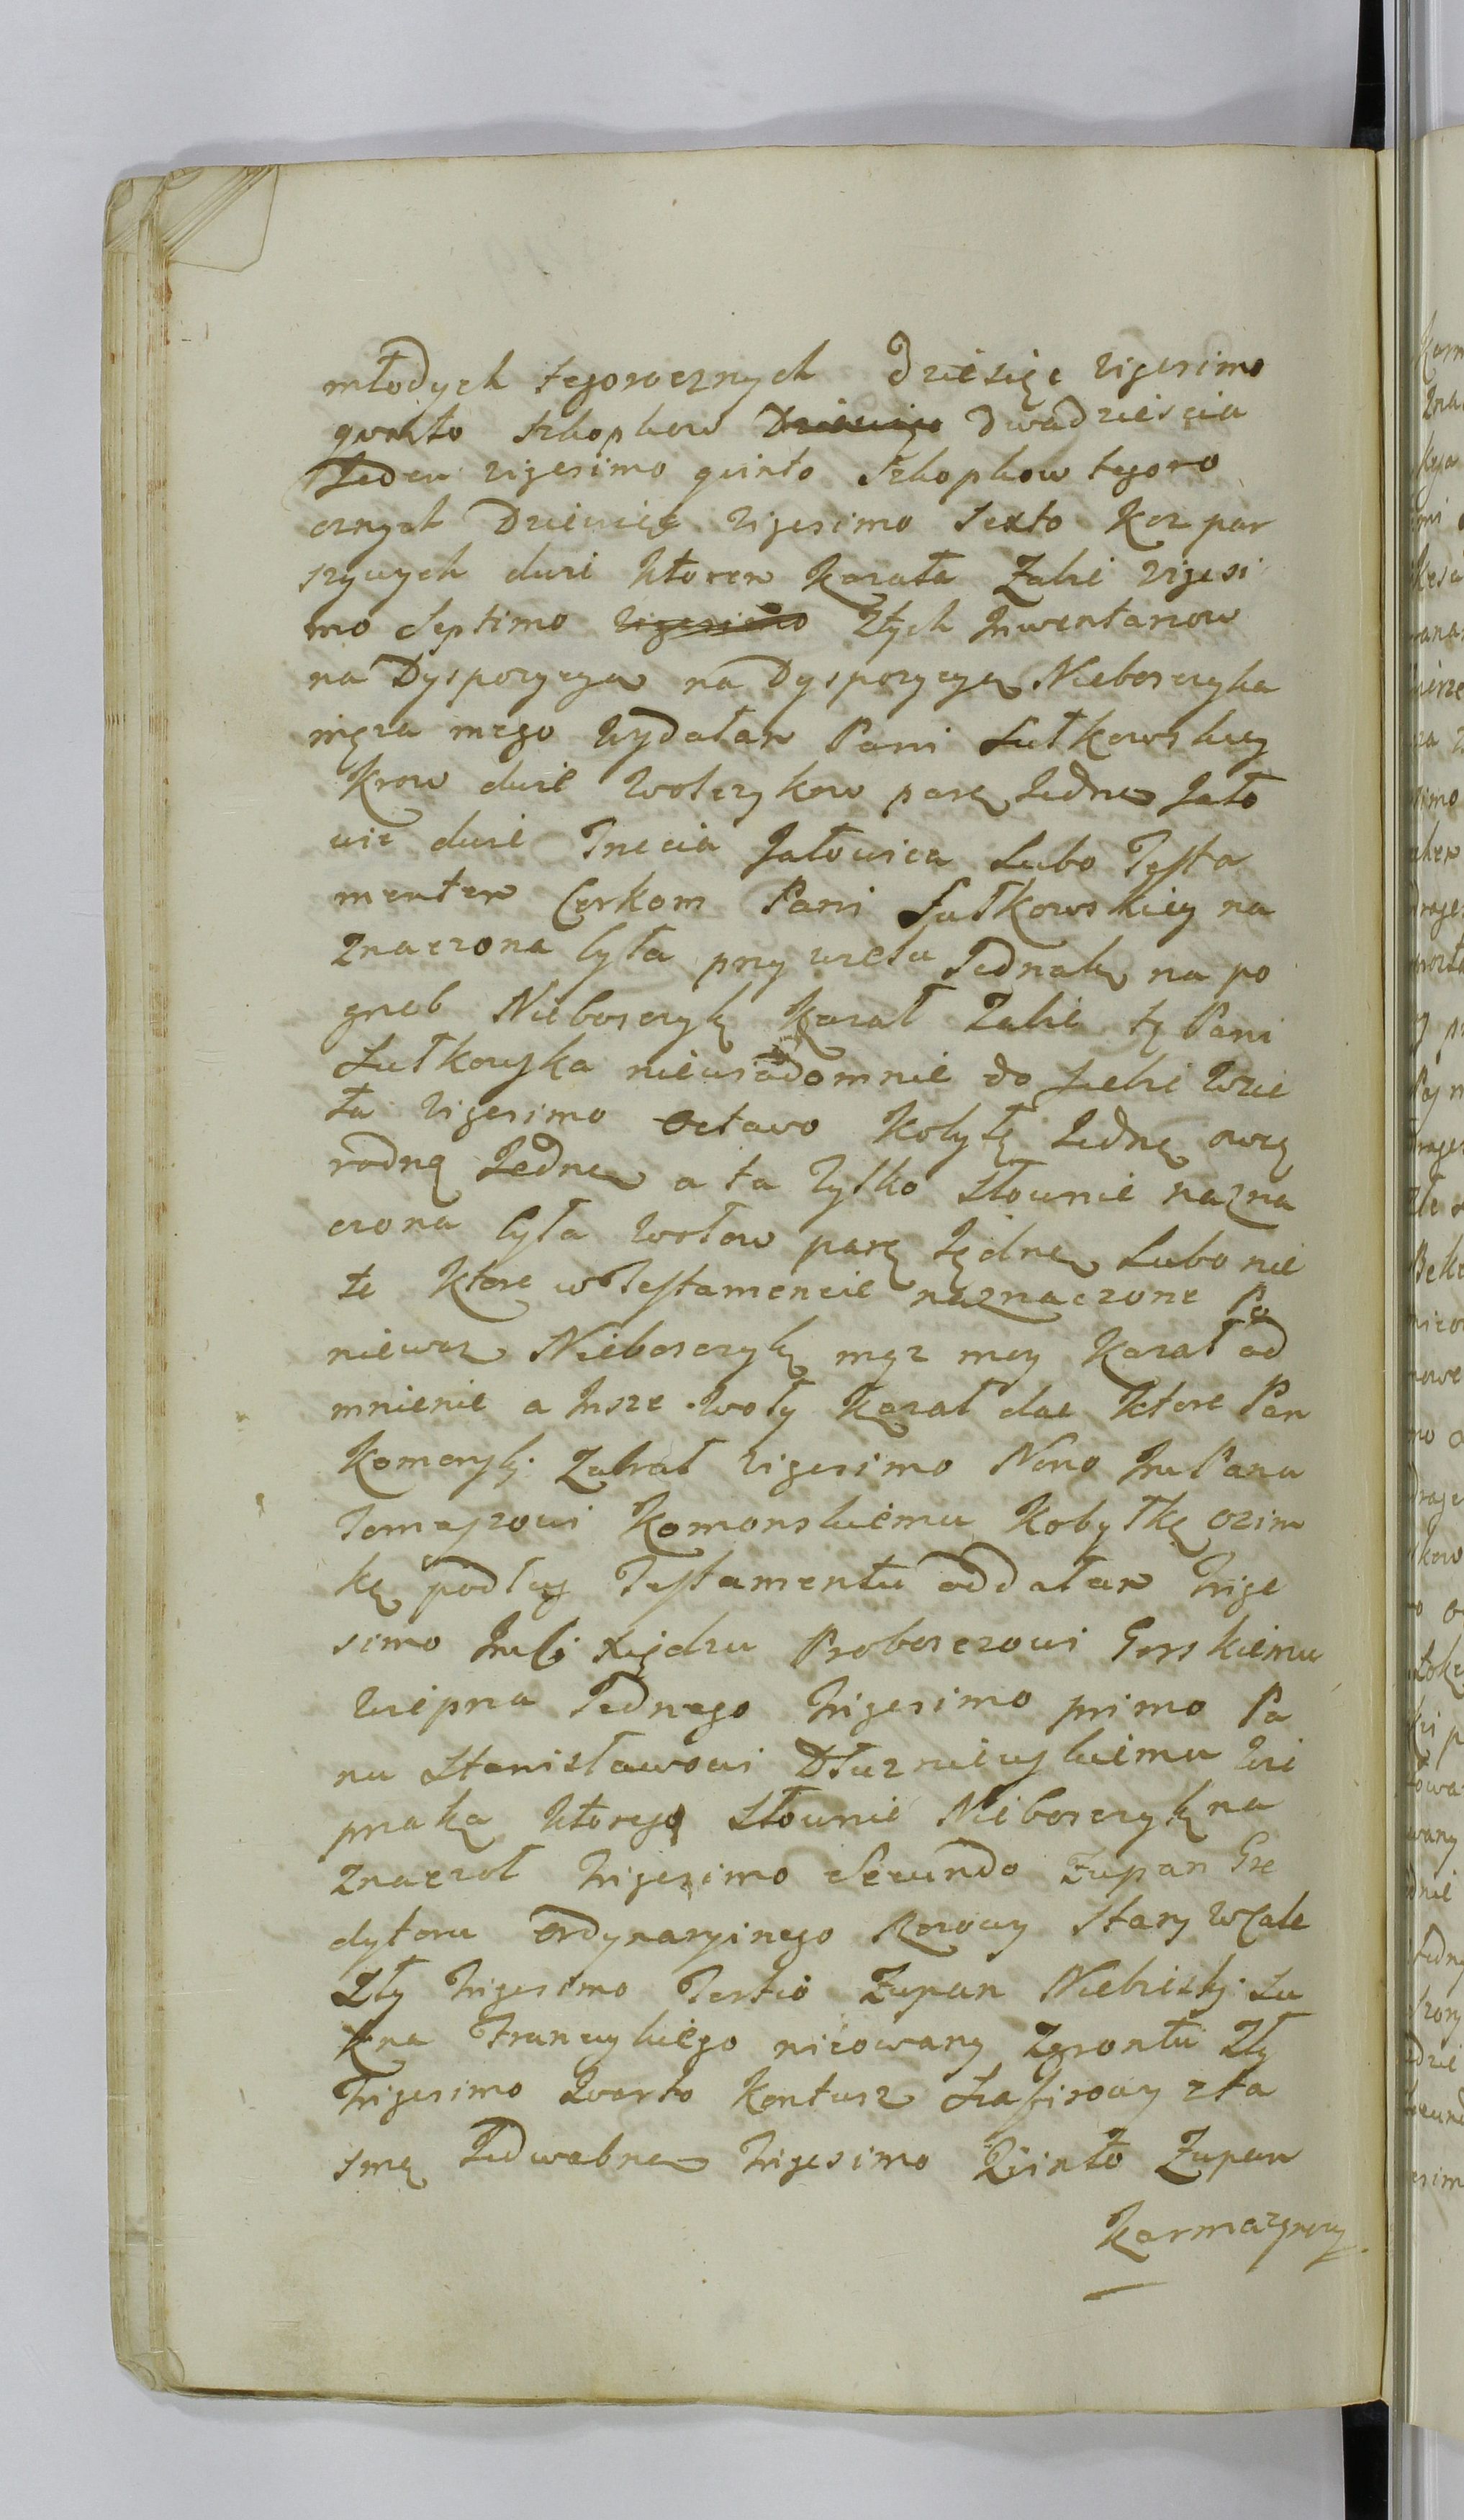 młodych tegorocznych Dziesięc vigesimo
qvarto szkopkow Dziewięc Dwadziescia
Jeden vigesimo quinto Szkopkow tegoro
cznych Dziewięc vigesimo Sexto Koz par
szywych dwie ktorem Kazała Zabic vigesi
mo Septimo vigesimo Z tych Inwentarzow
na Dyspozycyą na Dyspozycyą Nieboszczyka
męza mego Wydałam Pani Lutkowskiey
Krow dwie Wolczykow parę Jednę Jało
wic dwie Trzecia Jałowica Lubo Testa
mentem Corkom Pani Lutkowskiey na
znaczona była przy wielu Jednak na po
grzeb Nieboszczyk Kazał Zabic tę Pani
Lutkowska niewiadomnie do siebie Wzie
ła vigesimo octavo Kobyłę Jednę owcę
rodną Jednę a ta Tylko Słownie nazna
czona była Wołow parę Jędnę Lubo nie
te ktore w Testamencie naznaczone Po
niewaz Nieboszczyk mąz moy Kazał od
mnienie a Insze woły Kazał dac ktore Pan
Komorski Zabrał vigesimo Nono Jm Panu
Tomaszowi Komorskiemu Kobyłkę ozim
kę podług Testamentu oddałam Trige
simo Jmci Xiędzu Proboszczowi Gorskiemu
Wieprza Jednego Trigesimo primo Pa
nu Stanisławowi Dłuzniewskiemu Wie
przaka ktorego Słownie Nieboszczyk na
znaczał Trigesimo Secundo Zupan Gre
dytoru ordynaryinego Rozowy Stary Wcale
Zły Trigesimo Tertio Zupan Niebieski Su
kna Francuskiego nicowany Zgrontu Zły
Trigesimo Quarto Kontusz Szafirowy z ta
smą Jedwabną Trigesimo Quinto Zupan
Karmazynowy